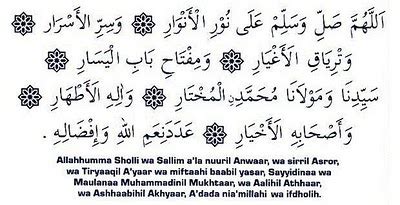 اَللَّهُمَّ صَلِّ وَسَلِّمْ عَلَى نُوْرِ الْأَنْوَارِ ۞ وَسِرِّ الْأَسْرَارِ ۞
وَتِرْيَاقِ الْأَغْيَارِ ۞ وَمِفْتَاحِ بَابِ الْيَسَارِ ۞
سَيِّدِنَا وَمَوْلَانَا مُحَمَّدِنِ الْمُخْتَارِ ۞ وَالِهِ الْأَطْهَارِ ۞
وَأَصْحَابِهِ الْأَخْيَارِ ۞ عَدَدَ نِعَمِ اللهِ وَإِفْضَالِهِ .
Allahhumma Sholli wa Sallim a'la nuuril Anwaar, wa sirril Asror,
wa Tiryaaqil A'yaar wa miftaahi baabil yasar, Sayyidinaa wa
Maulanaa Muhammadinil Mukhtaar, wa Aalihil Athhaar,
wa Ashhaabihil Akhyaar, A'dada nia'millahi wa ifdholih.